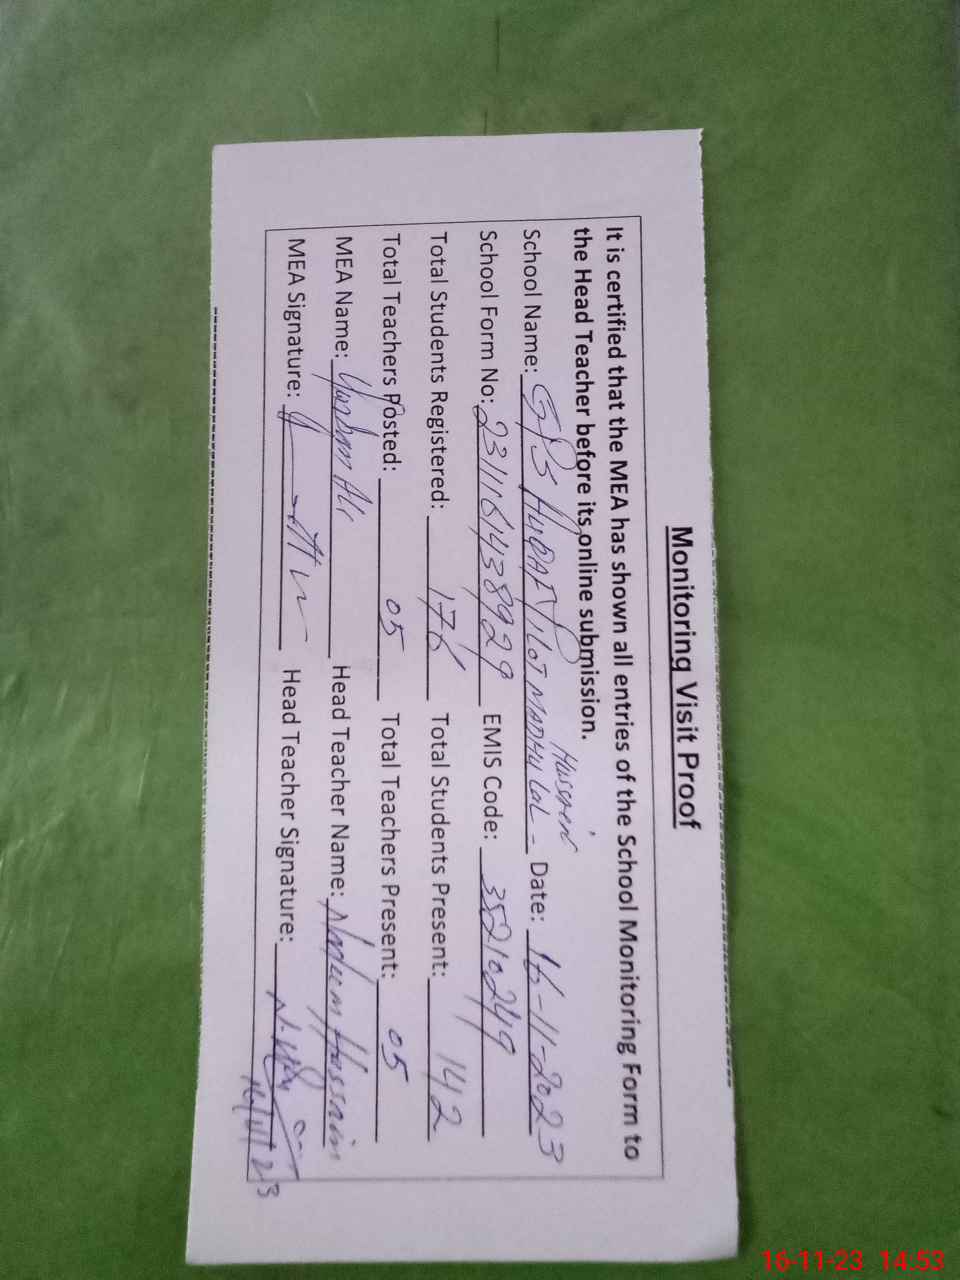 Monitoring Visit Proof
It is certified that the MEA has shown all entries of the School Monitoring Form to
the Head Teacher before its online submission.
Hussain
School Name: GPS PILOT MADHU LAL - Date: 16-11-2023
School Form No: 2311161438929 EMIS Code: 35210249
Total Students Registered: 176 Total Students Present: 142
Total Teachers Posted: 05 Total Teachers Present: 05
MEA Name: Ali Head Teacher Name: Nadeem Hussain
MEA Signature: Head Teacher Signature:
16/11/23
16-11-23 14:53